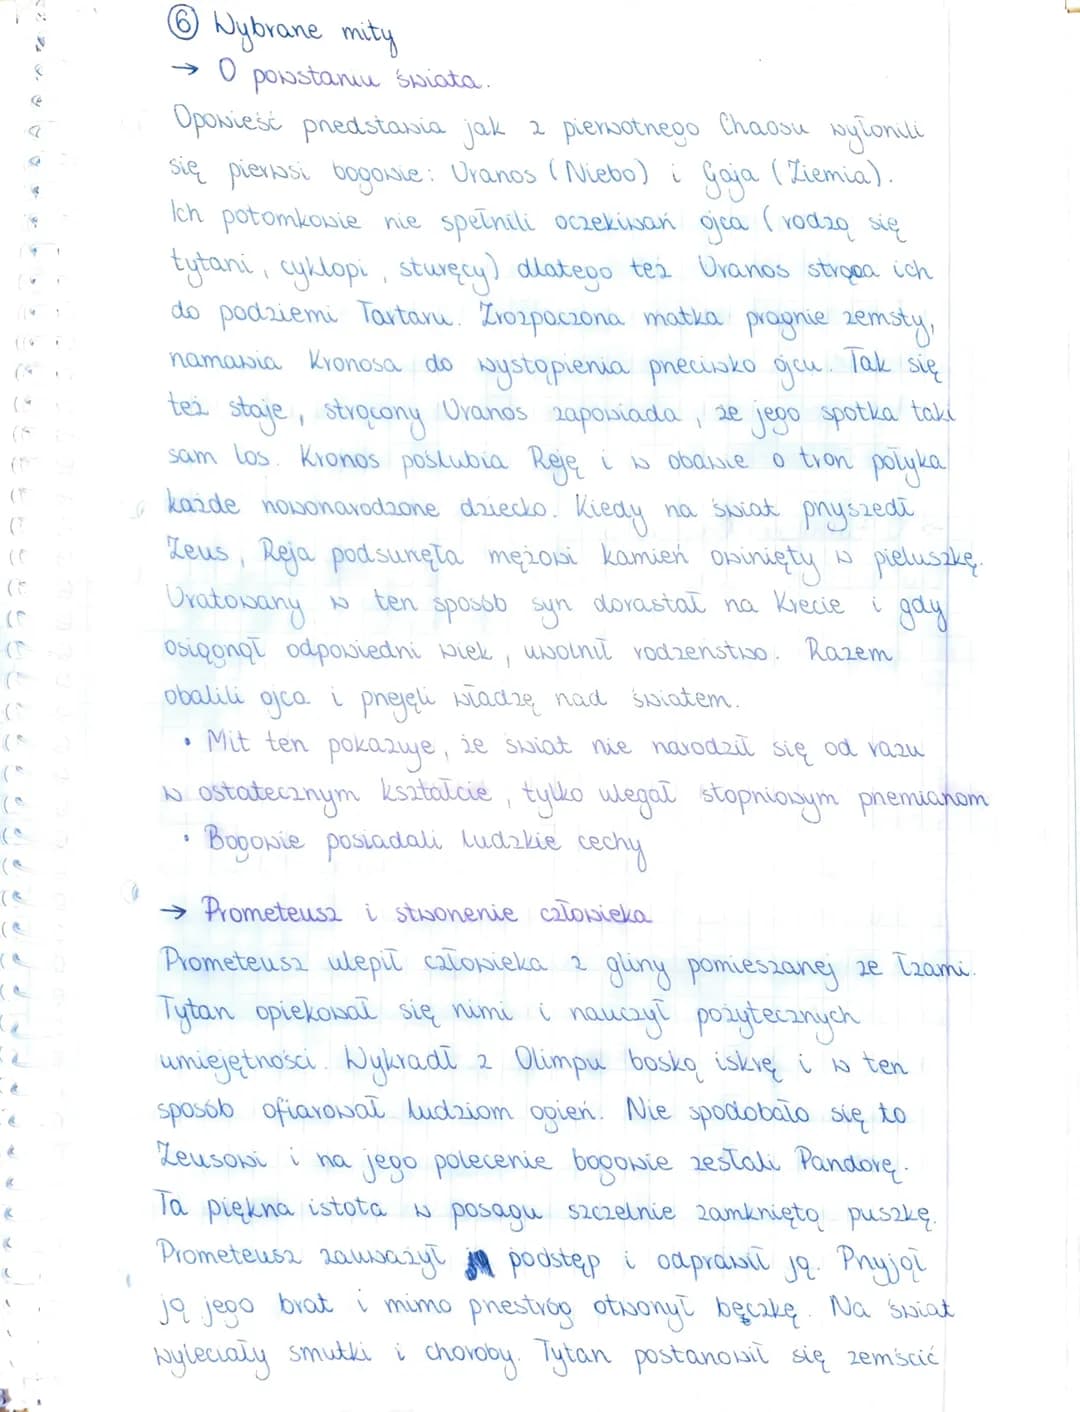 ⑥ Wybrane mity
→ O powstaniu świata.
Opowieść przedstawia jak z pierwotnego Chaosu wyłonili
się pierwsi bogowie: Uranos (Niebo) i Gaja (Ziemia).
Ich potomkowie nie spełnili oczekiwań ojca (rodzą się
tytani, cyklopi, sturęcy) dlatego też Uranos strąca ich
do podziemi Tartaru. Zrozpaczona matka pragnie zemsty,
namawia Kronosa do wystąpienia przeciwko ojcu. Tak się
też staje, strącony Uranos zapowiada, że jego spotka taki
sam los. Kronos poślubia Reję i w obawie o tron połyka
każde nowonarodzone dziecko. Kiedy na świat przyszedł
Zeus, Reja podsunęła mężowi kamień owinięty w pieluszkę.
Uratowany w ten sposób syn dorastał na Krecie i gdy
osiągnął odpowiedni wiek, uwolnił rodzeństwo. Razem
obalili ojca i przejęli władzę nad światem.
• Mit ten pokazuje, że świat nie narodził się od razu
w ostatecznym kształcie, tylko ulegał stopniowym przemianom
• Bogowie posiadali ludzkie cechy
→ Prometeusz i stworzenie człowieka
Prometeusz ulepił człowieka z gliny pomieszanej ze łzami.
Tytan opiekował się nimi i nauczył pożytecznych
umiejętności. Wykradł z Olimpu boską iskrę i w ten
sposób ofiarował ludziom ogień. Nie spodobało się to
Zeusowi i na jego polecenie bogowie zesłali Pandorę.
Ta piękna istota w posagu szczelnie zamkniętą puszkę.
Prometeusz zauważył podstęp i odprawił ją. Przyjął
ją jego brat i mimo przestróg otworzył beczkę. Na świat
wyleciały smutki i choroby. Tytan postanowił się zemścić